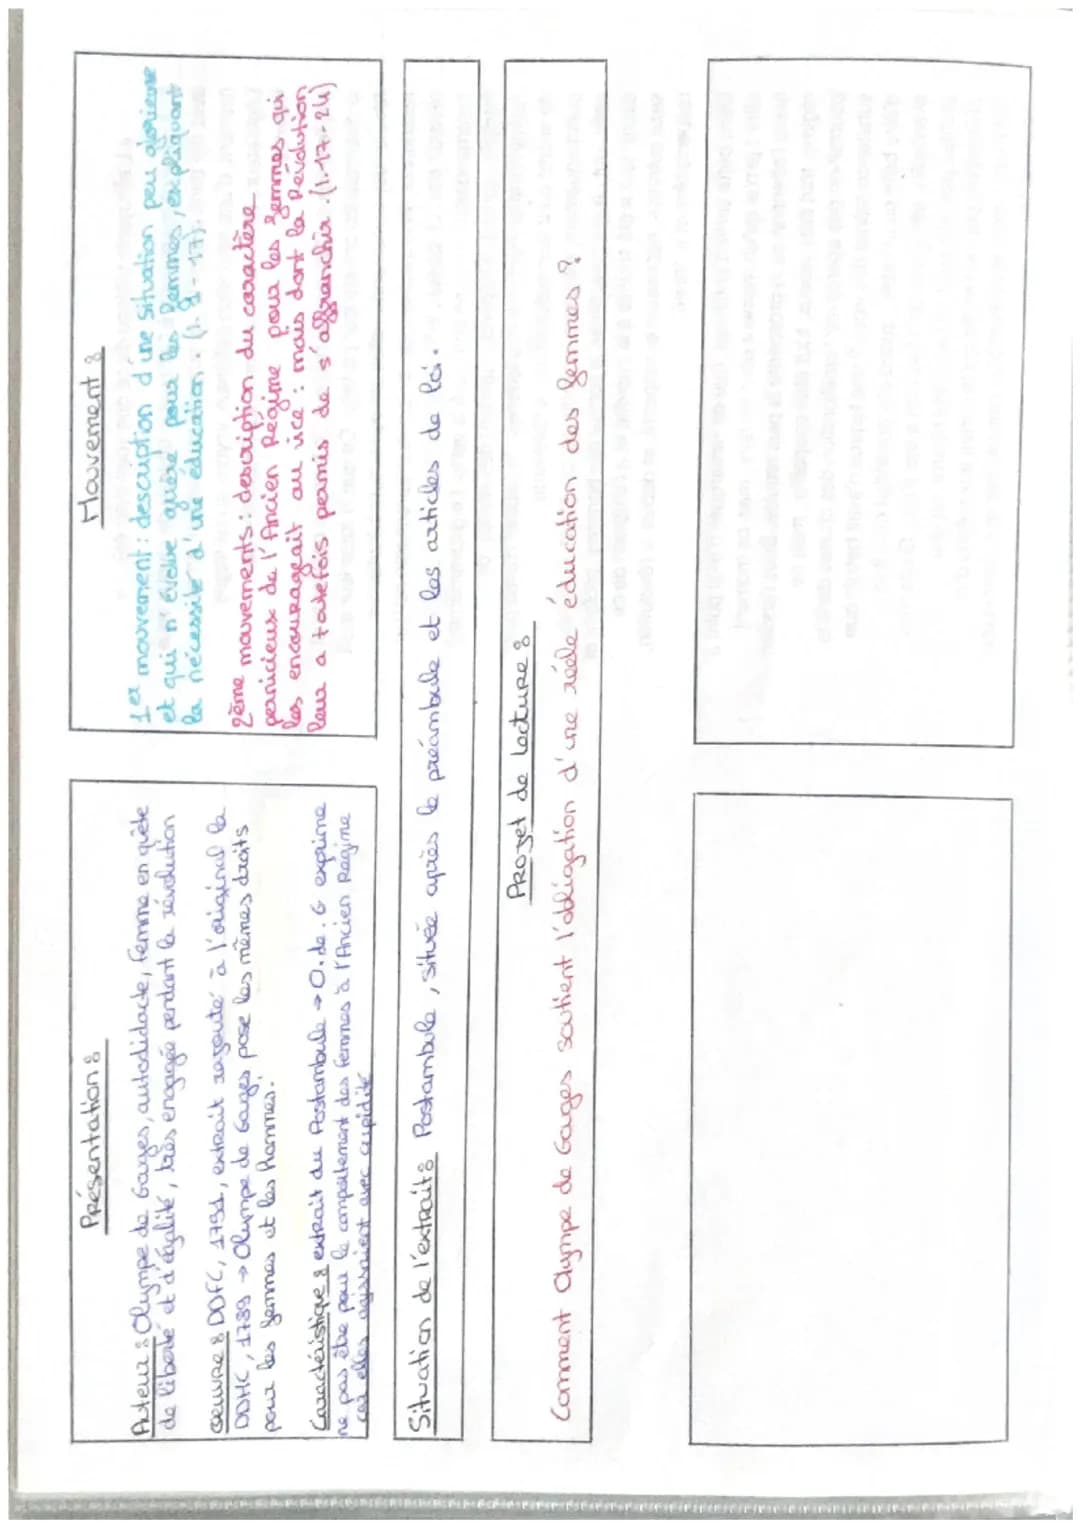 Présentation :
Auteur : Olympe de Gouges, autodidacte, femme en quête
de liberté et d'égalité, très engagée pendant la révolution
Œuvre : DDFC, 1791, extrait rajouté à l'original la
DDHC, 1789 → Olympe de Gouges pose les mêmes droits
pour les femmes et les hommes.
Caractéristique : extrait du Postambule → O.de.G exprime
ne pas être pour le comportement des femmes à l'Ancien Régime
car elles agissaient avec cupidité
Mouvement :
1er mouvement : description d'une situation peu glorieuse
et qui n'évolue guère pour les femmes, expliquant
la nécessité d'une éducation. (l. 1-17)
2ème mouvements : description du caractère
pernicieux de l'Ancien Régime pour les femmes qui
les encourageait au vice : mais dont la Révolution
leur a toutefois permis de s'affranchir. (l.17-24)
Situation de l'extrait : Postambule, située après le préambule et les articles de loi.
Projet de lecture :
Comment Olympe de Gouges soutient l'obligation d'une réelle éducation des femmes ?